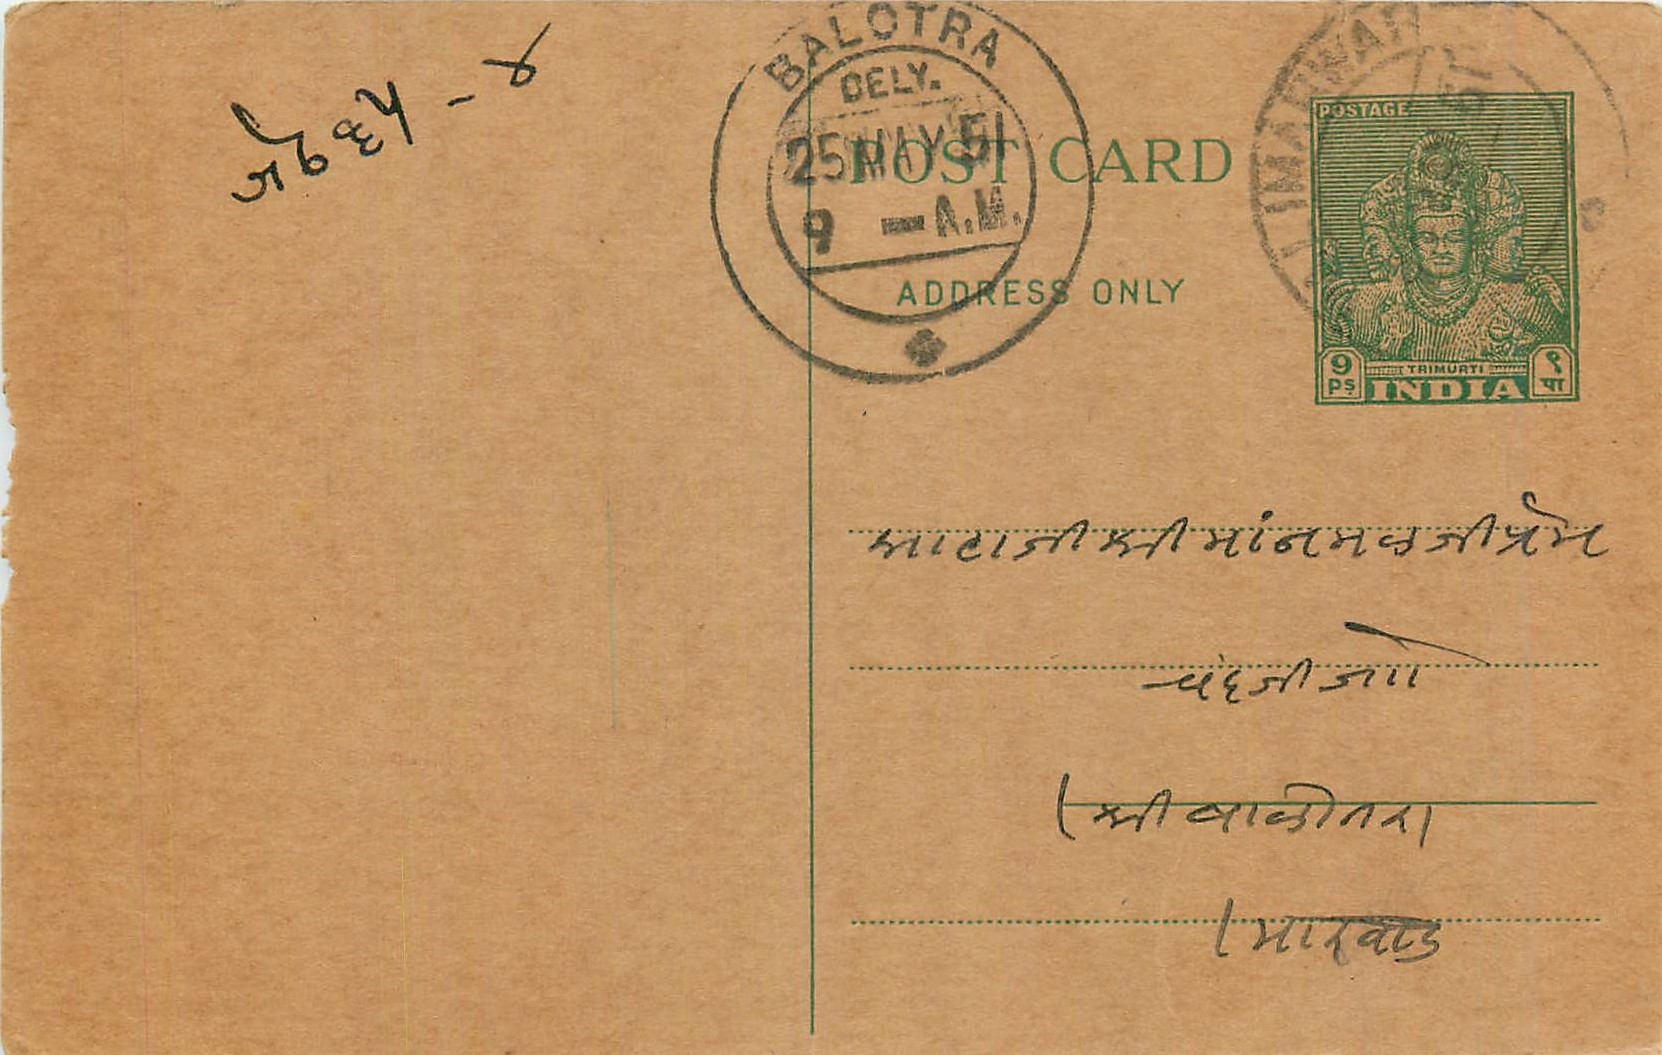 BALOTRA
DELY.
25 MAY 51
9 — A.M.
MARWAR
POSTAGE
POST CARD
ADDRESS ONLY
9 PS
TRIMURTI
१ पा
INDIA
जेठ
श्री मांनमलजी प्रेम
चंदजी
श्री बालोतरा
मारवाड